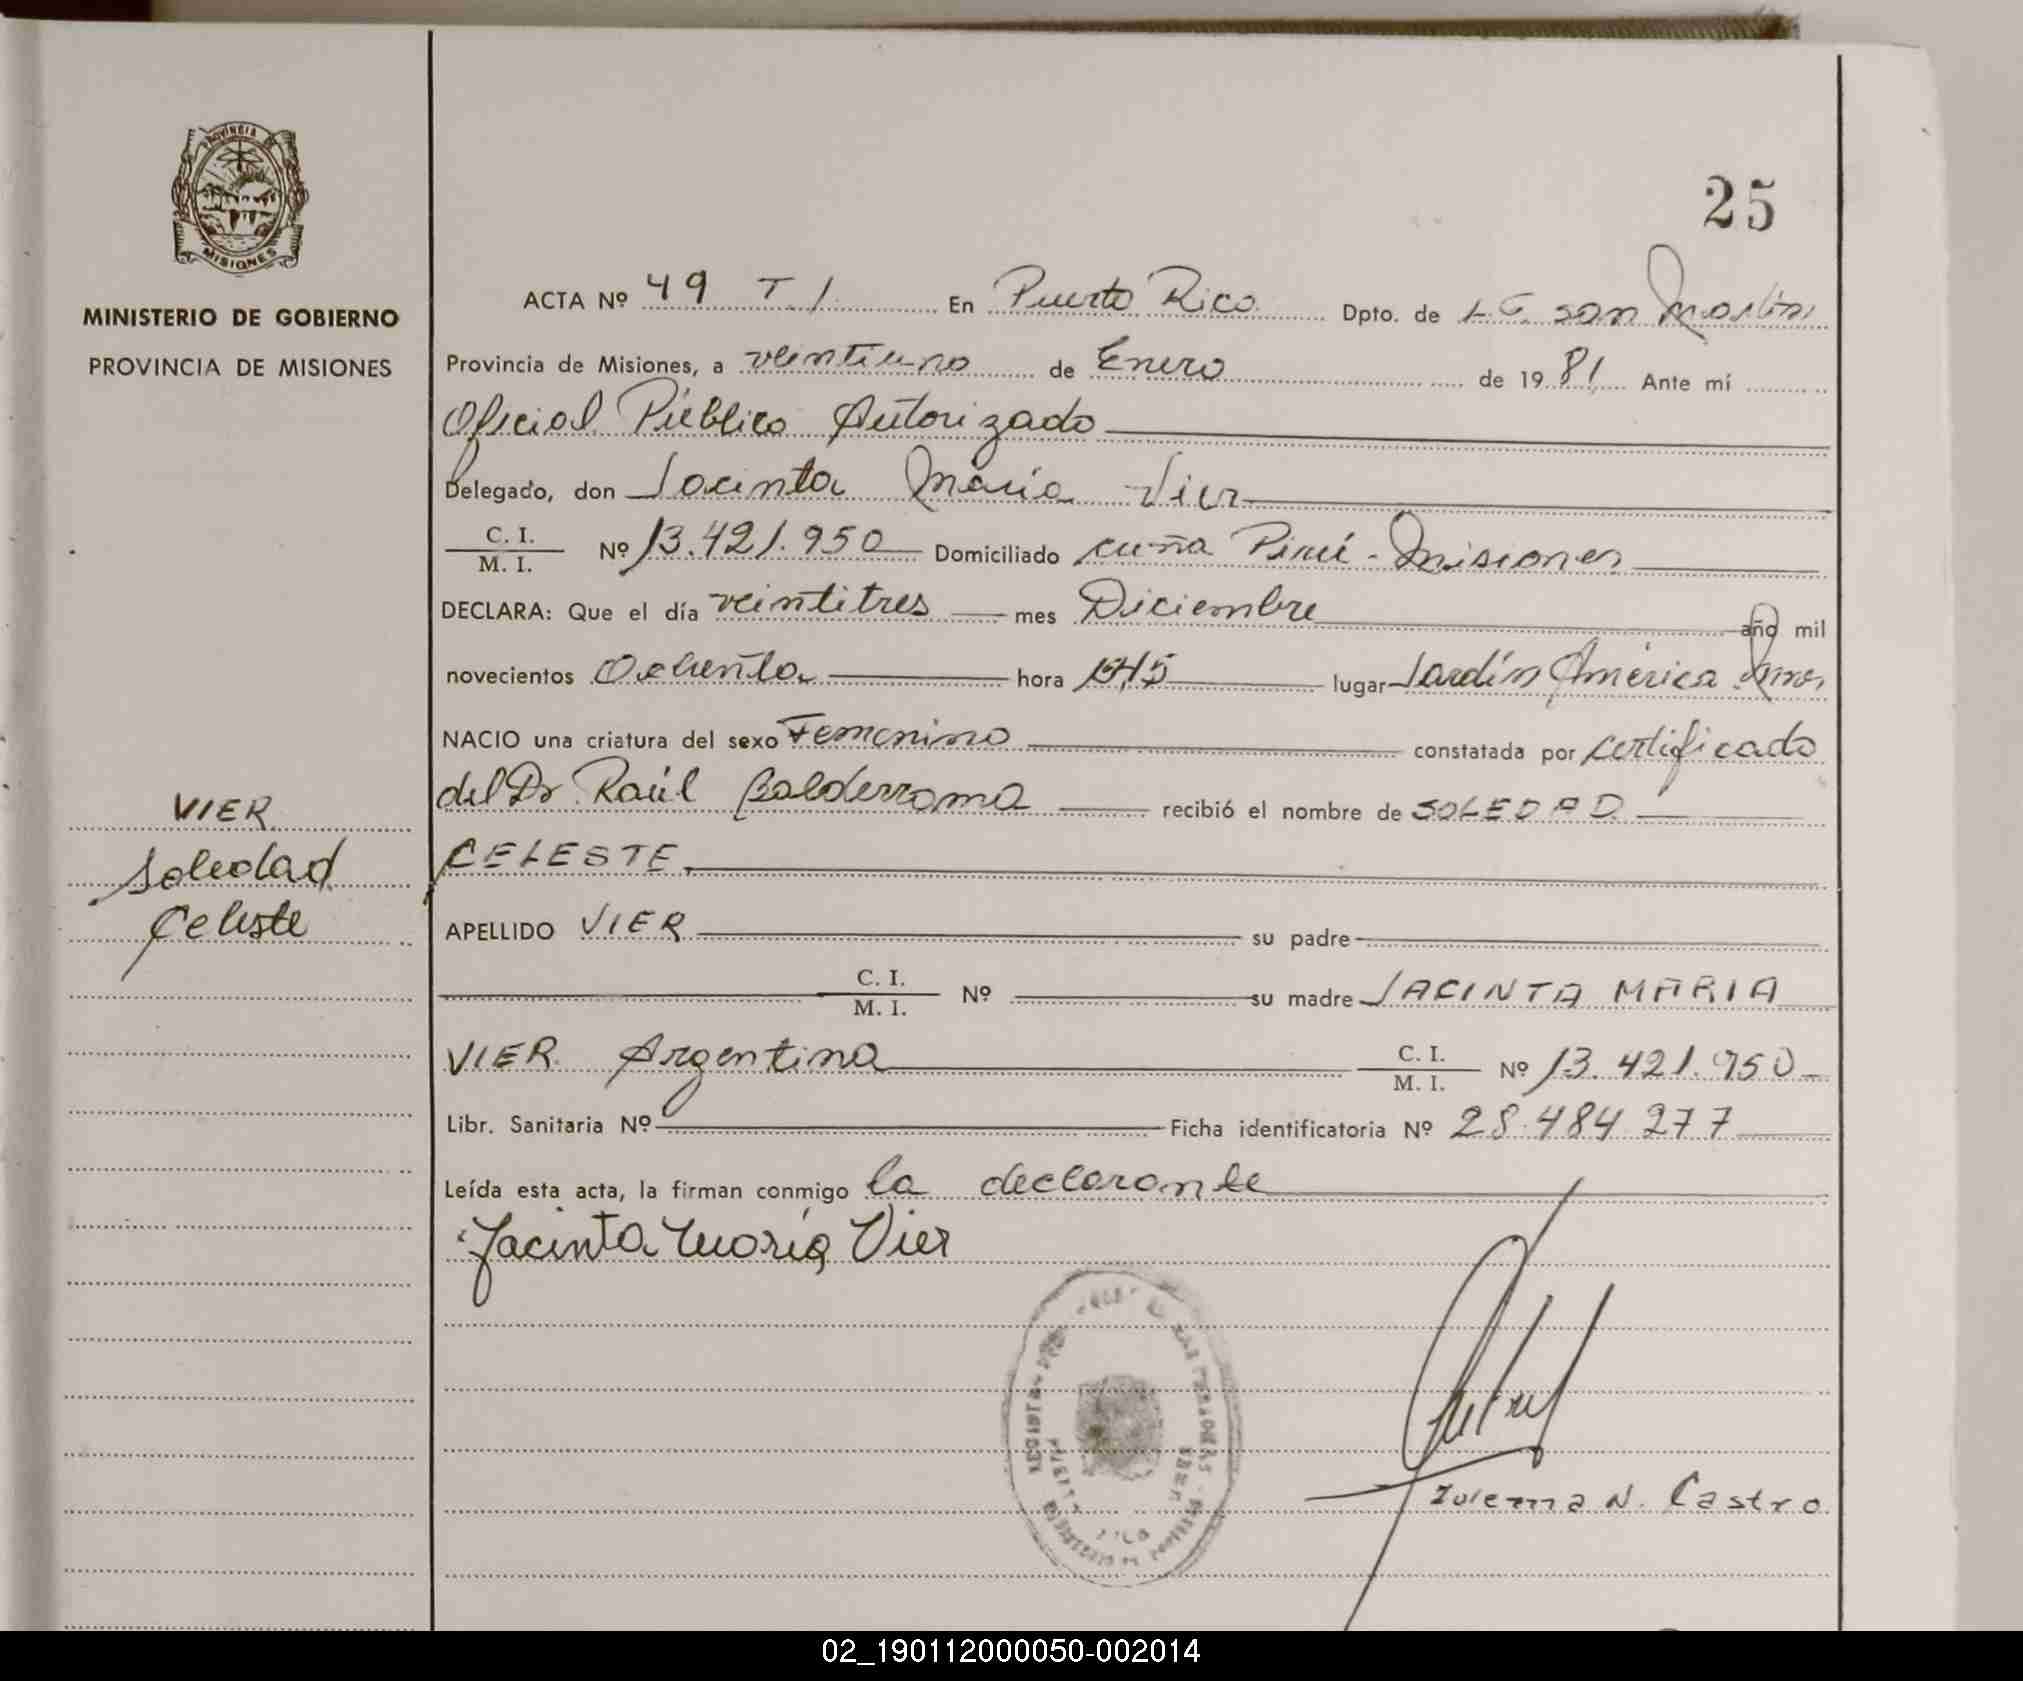 PROVINCIA DE
MISIONES
MINISTERIO DE GOBIERNO
PROVINCIA DE MISIONES
VIER
Soledad
Celeste
25
ACTA Nº 49 T 1 En Puerto Rico Dpto. de L.G. San Martín
Provincia de Misiones, a veintiuno de Enero de 1981 Ante mí
Oficial Público Autorizado
Delegado, don Jacinta María Vier
C. I.
M. I. Nº 13.421.950 Domiciliado Cuña Pirú - Misiones
DECLARA: Que el día veintitres mes Diciembre año mil
novecientos Ochenta hora lugar Jardín América Mnes
NACIO una criatura del sexo Femenino constatada por certificado
del Dr. Raúl Balderrama recibió el nombre de SOLEDAD
CELESTE.
APELLIDO VIER su padre
C. I.
M. I. Nº su madre JACINTA MARIA
VIER Argentina C. I.
M. I. Nº 13.421.950
Libr. Sanitaria Nº Ficha identificatoria Nº 28.484.277
Leída esta acta, la firman conmigo la declarante
Jacinta María Vier
Zulema N. Castro
02_190112000050-002014